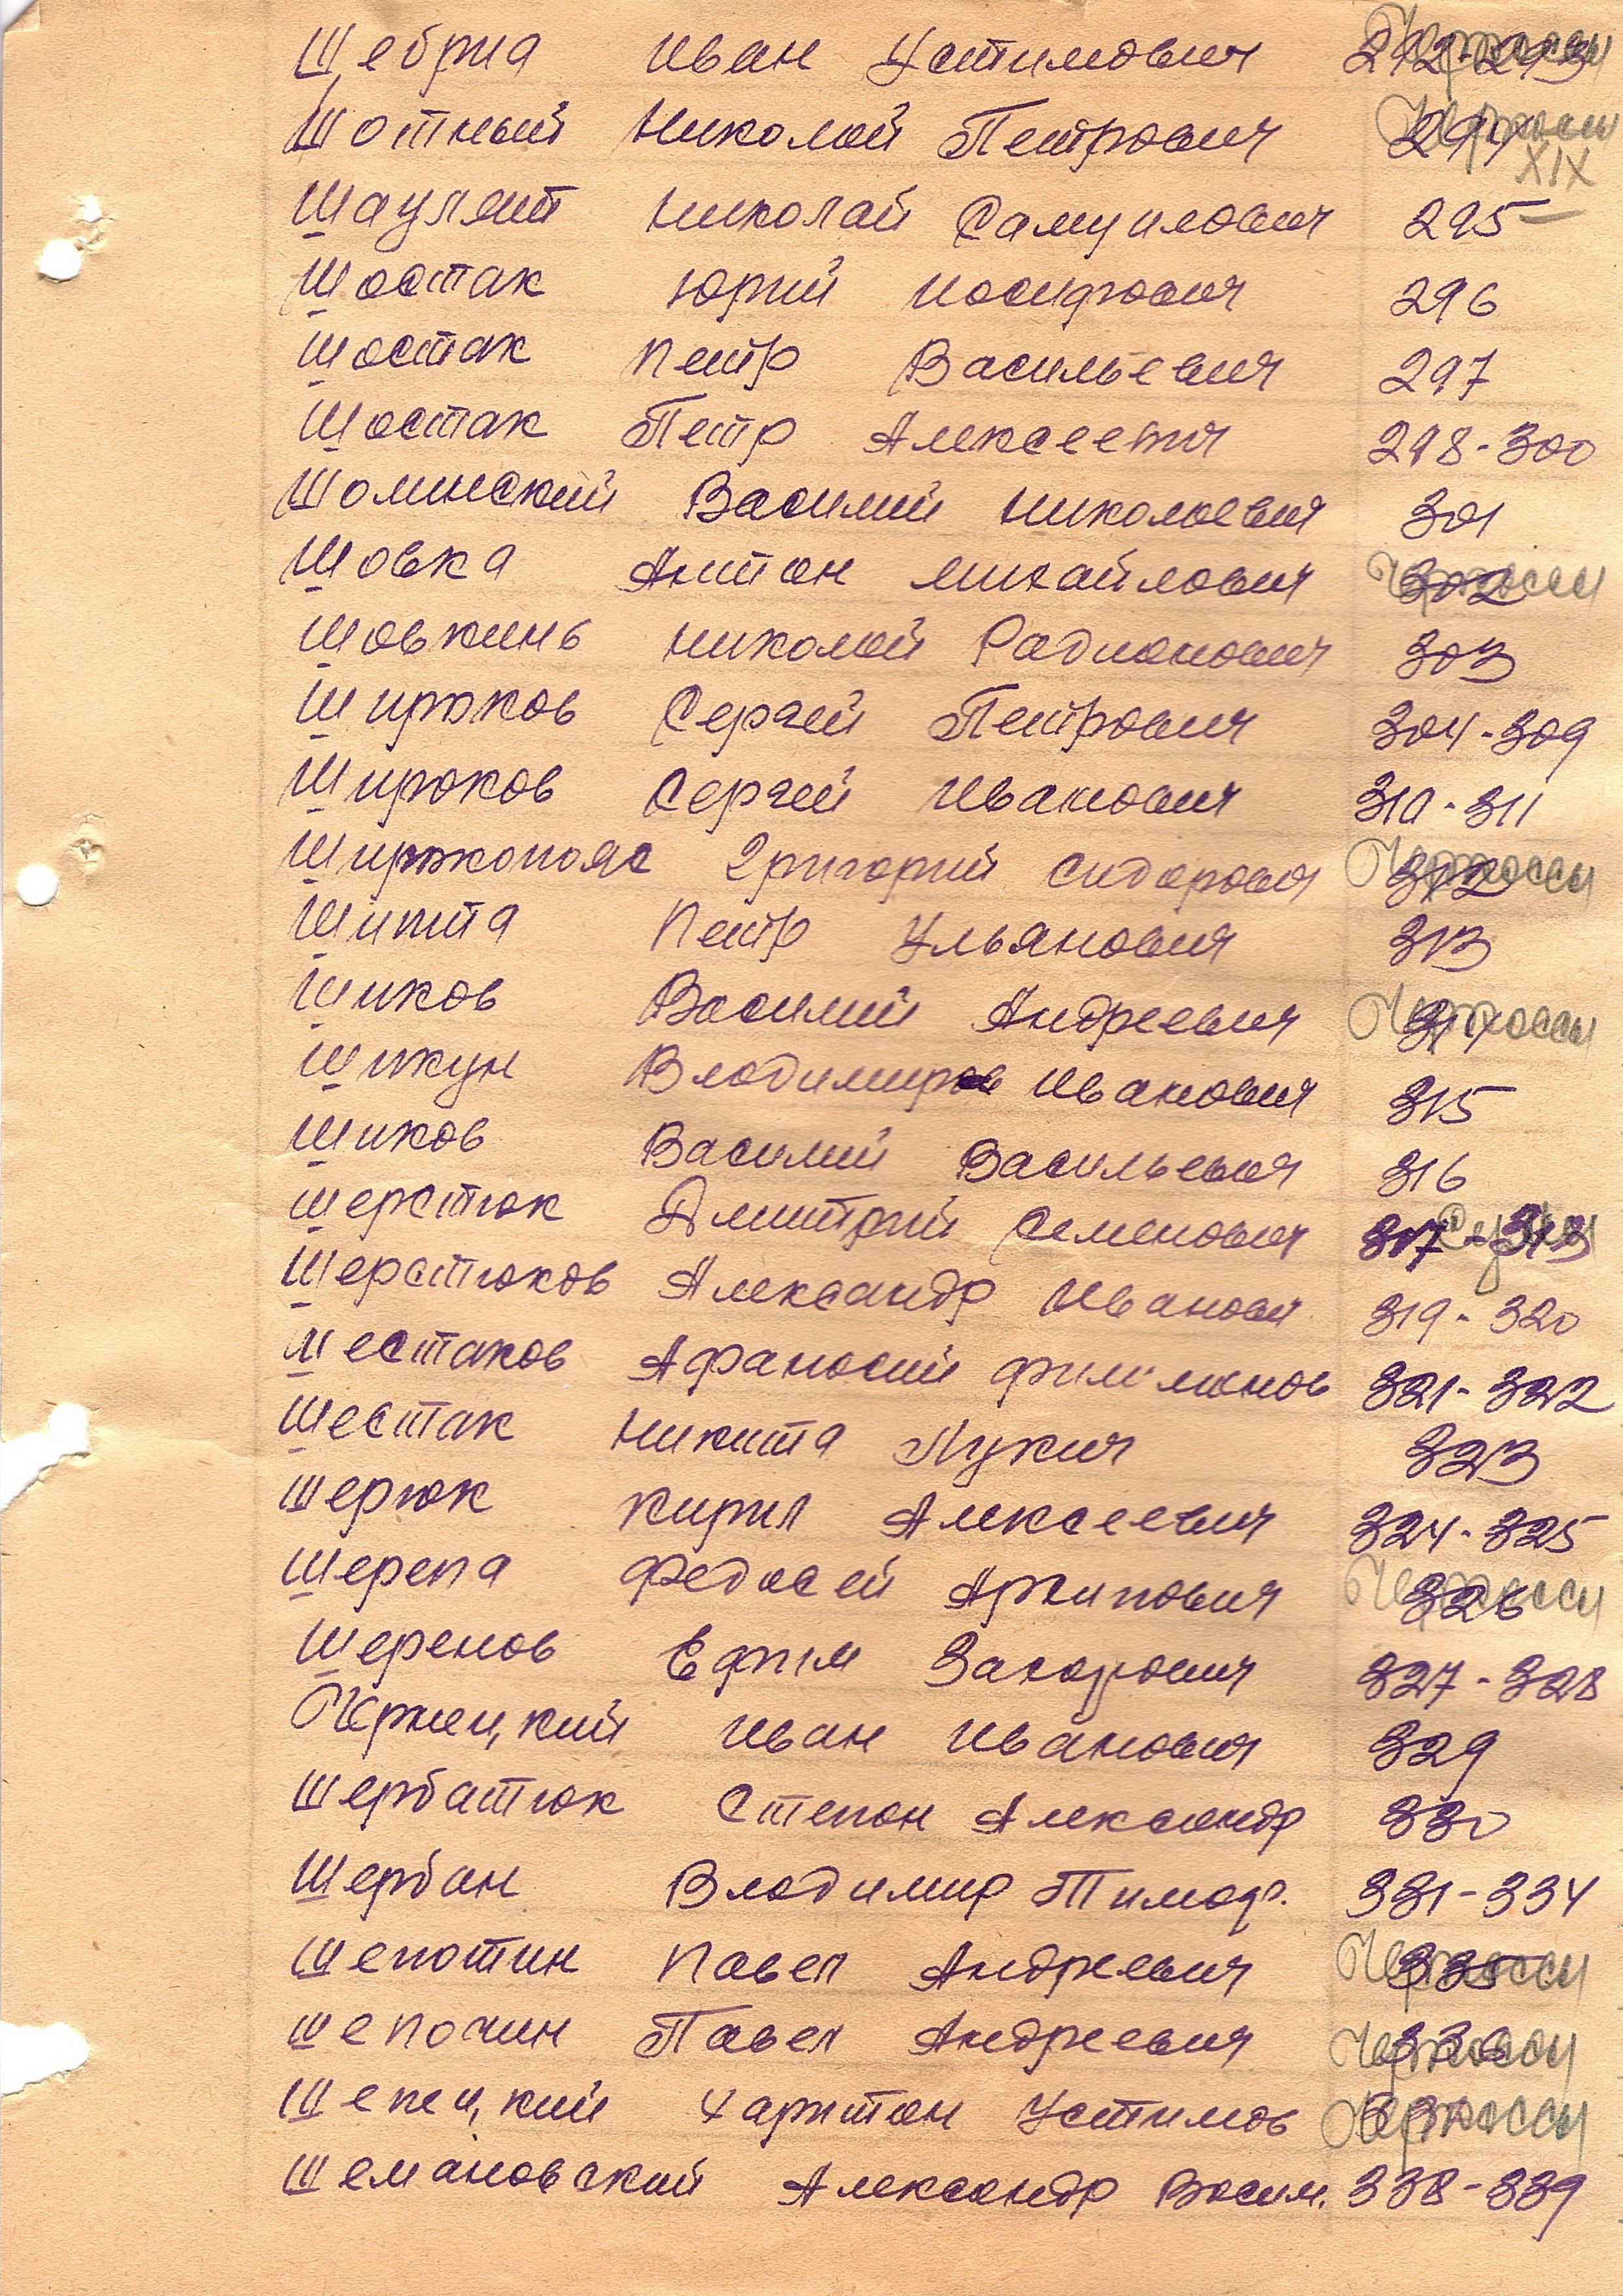 Шебрия Иван Устимович 292-293 Черкассы
Шотный Николай Петрович 294 Черкассы
XIX
Шаулянт Николай Самуилович 295
Шостак Юрий Иосифович 296
Шостак Петр Васильевич 297
Шостак Петр Алексеевич 298-300
Шоминский Василий Николаевич 301
Шовка Антон Михайлович 302 Черкассы
Шовкинь Николай Радионович 303
Широков Сергей Петрович 304-309
Широков Сергей Иванович 310-311
Широкопояс Григорий Сидорович 312 Черкассы
Шипта Петр Ульянович 313
Шиков Василий Андреевич 314 Черкассы
Шикун Владимир Иванович 315
Шиков Василий Васильевич 316
Шерстюк Дмитрий Семенович 317-318 Сумы
Шерстюков Александр Иванович 319-320
Шестаков Афанасий Филимонов 321-322
Шестак Никита Лукич 323
Шерюк Кирил Алексеевич 324-325
Шерепа Федосей Архипович 326 Черкассы
Шеренов Ефим Захарович 327-328
Чернецкий Иван Иванович 329
Шербатюк Степан Александр 330
Шербан Владимир Тимоф. 331-334
Шепотин Павел Андреевич 335 Черкассы
Шепочин Павел Андреевич 336 Черкассы
Шепецкий Харитон Устимов 337 Черкассы
Шемановский Александр Васил. 338-339